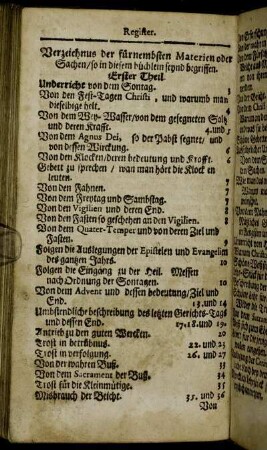 Register.
Verzeichnus der fürnembsten Materien oder
Sachen / so in diesem büchlein seynd begriffen.
Erster Theil.
Underricht von dem Sontag. 3
Von den Fest-Tagen Christi, und warumb man
dieselbige helt.
Von dem Wey-Wasser / von dem gesegneten Saltz
und deren Krafft. 4. und 5
Von dem Agnus Dei, so der Pabst segnet / und
von dessen Würckung. 6
Von den Klocken / deren bedeutung und Krafft. 6
Gebett zu sprechen / wan man hört die Klock en
leuten. 7
Von den Fahnen. 7
Von dem Freytag und Sambstag. 7
Von den Vigilien und deren End. 8
Von den Fasten so geschehen an den Vigilien. 8
Von dem Quater-Temper und von deren Ziel und
Fasten. 9
Folgen die Auslegungen der Epistelen und Evangelien
des gantzen Jahrs. 10
Folgen die Eingäng zu der Heil. Messen
nach Ordnung der Sontagen. 10
Von dem Advent und dessen bedeutung / Ziel und
End. 13. und 14
Umbständliche beschreibung des letzten Gerichts-Tags
und dessen End. 17. 18. und 19.
Antrieb zu den guten Wercken. 20
Trost in betrübnus. 22. und 23
Trost in verfolgung. 26. und 27
Von der wahren Buß. 33
Von dem Sacrament der Buß. 34
Trost für die Kleinmütige. 35
Misbrauch der Beicht. 35. und 36
Von